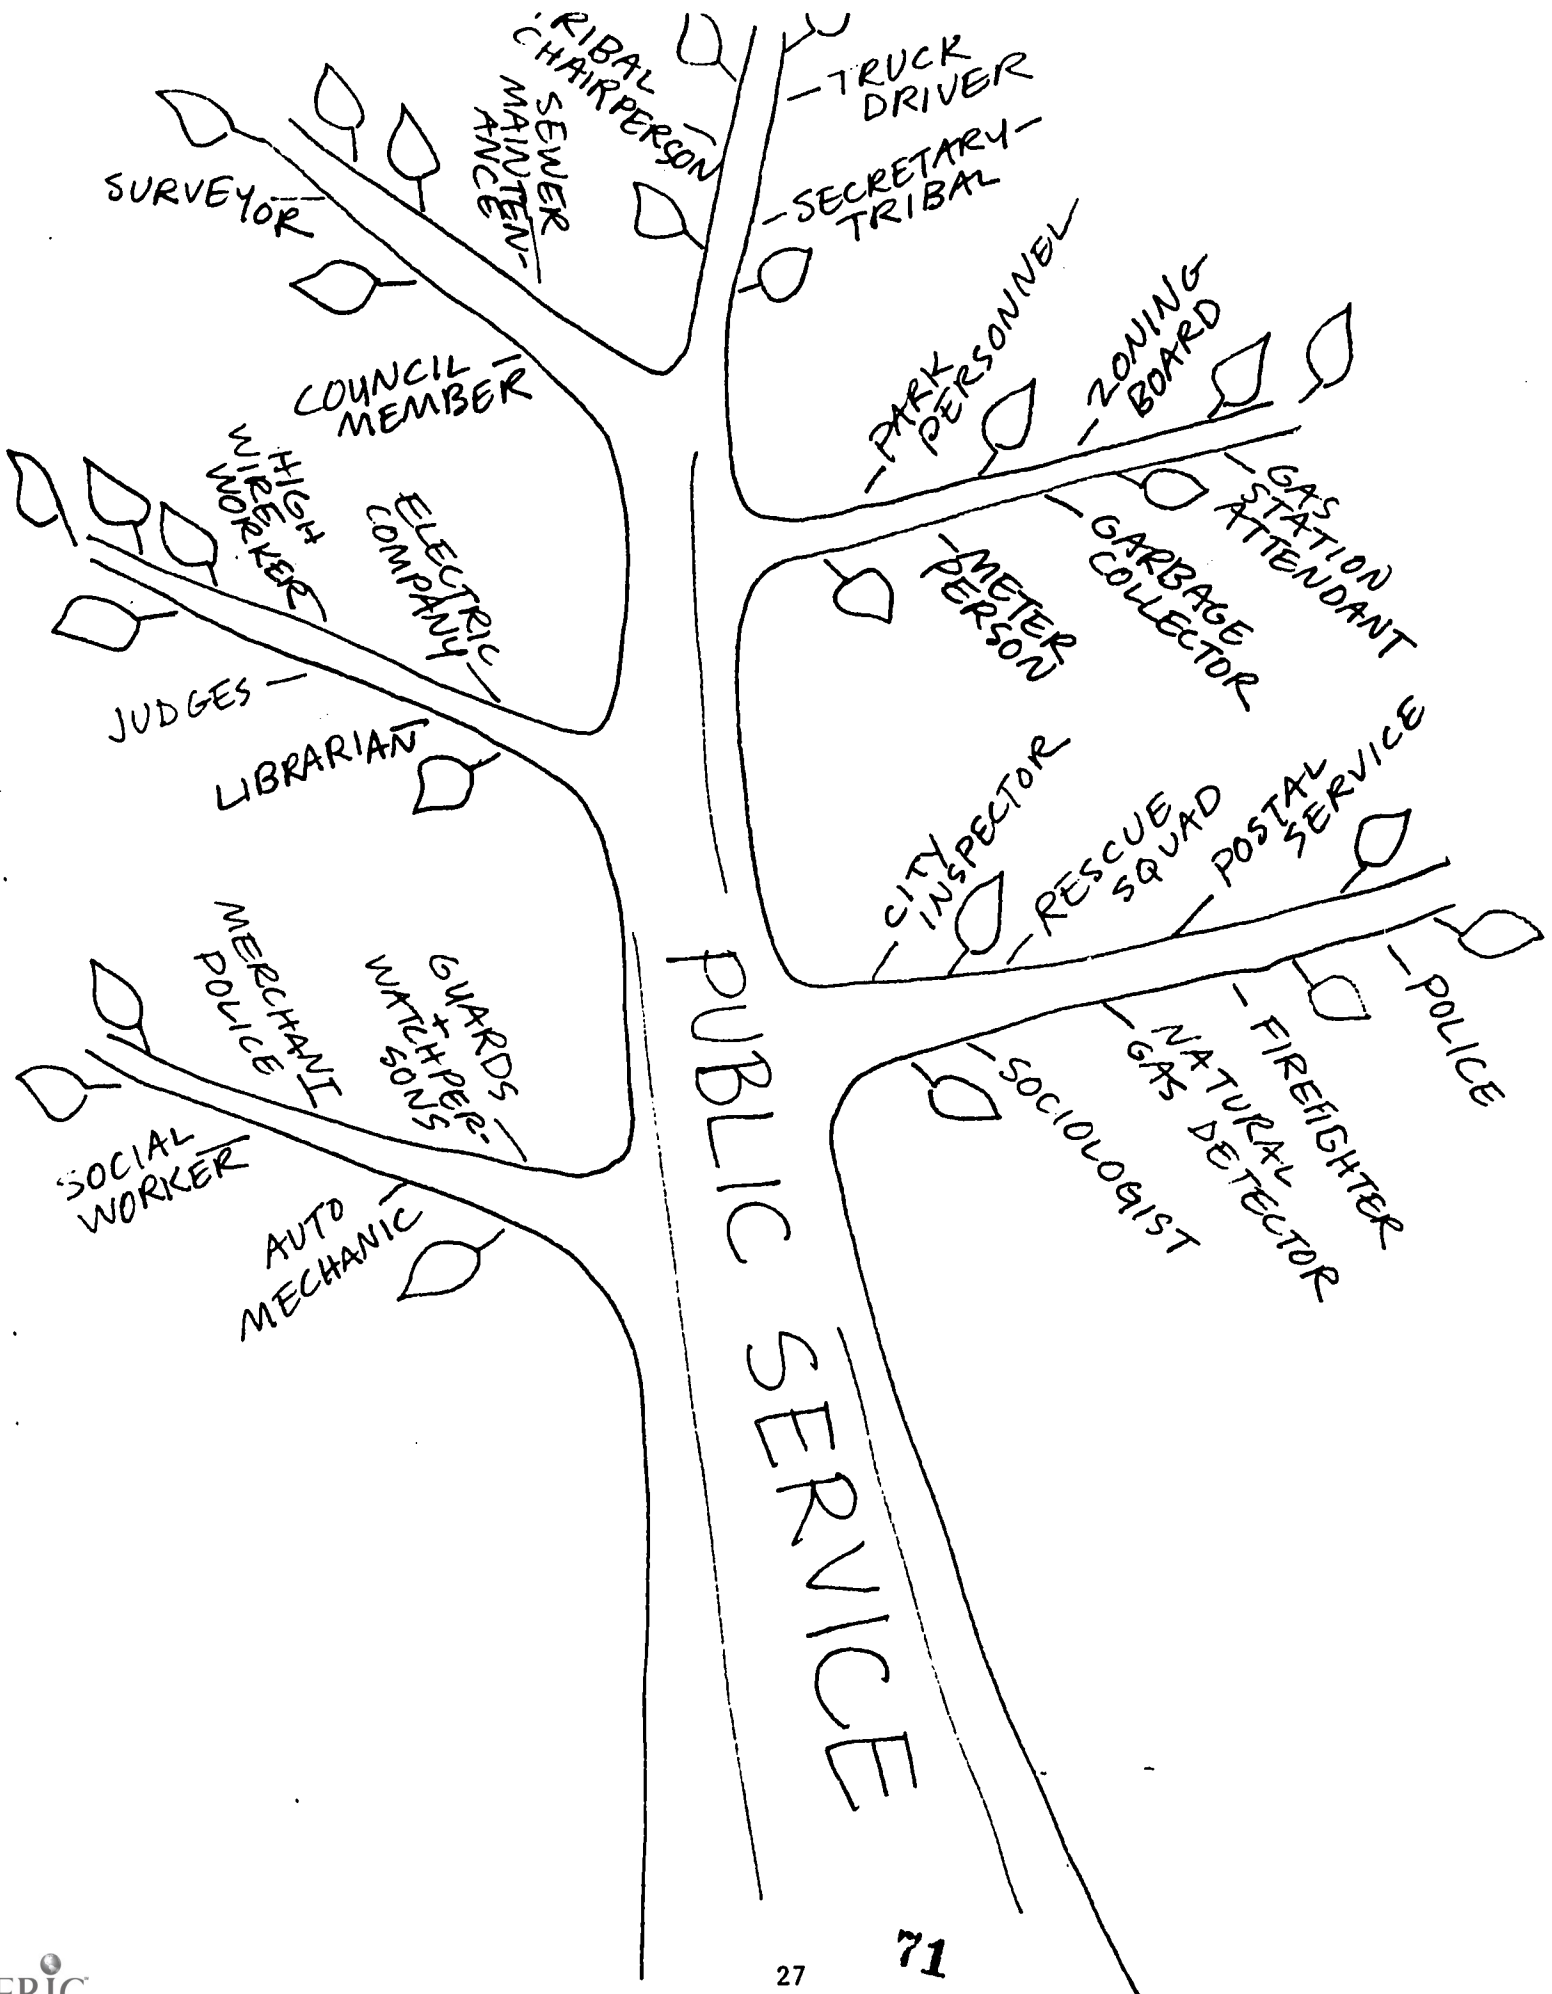 TRIBAL
CHAIRPERSON
TRUCK
DRIVER
SEWER
MAINTEN-
ANCE
SECRETARY-
TRIBAL
SURVEYOR
COUNCIL
MEMBER
PARK
PERSONNEL
ZONING
BOARD
GAS
STATION
ATTENDANT
GARBAGE
COLLECTOR
METER
PERSON
HIGH
WIRE
WORKER
ELECTRIC
COMPANY
JUDGES
LIBRARIAN
CITY
INSPECTOR
RESCUE
SQUAD
POSTAL
SERVICE
POLICE
FIREFIGHTER
NATURAL
GAS DETECTOR
SOCIOLOGIST
MERCHANT
POLICE
GUARDS
+
WATCHPER-
SONS
SOCIAL
WORKER
AUTO
MECHANIC
PUBLIC SERVICE
71
27
ERIC